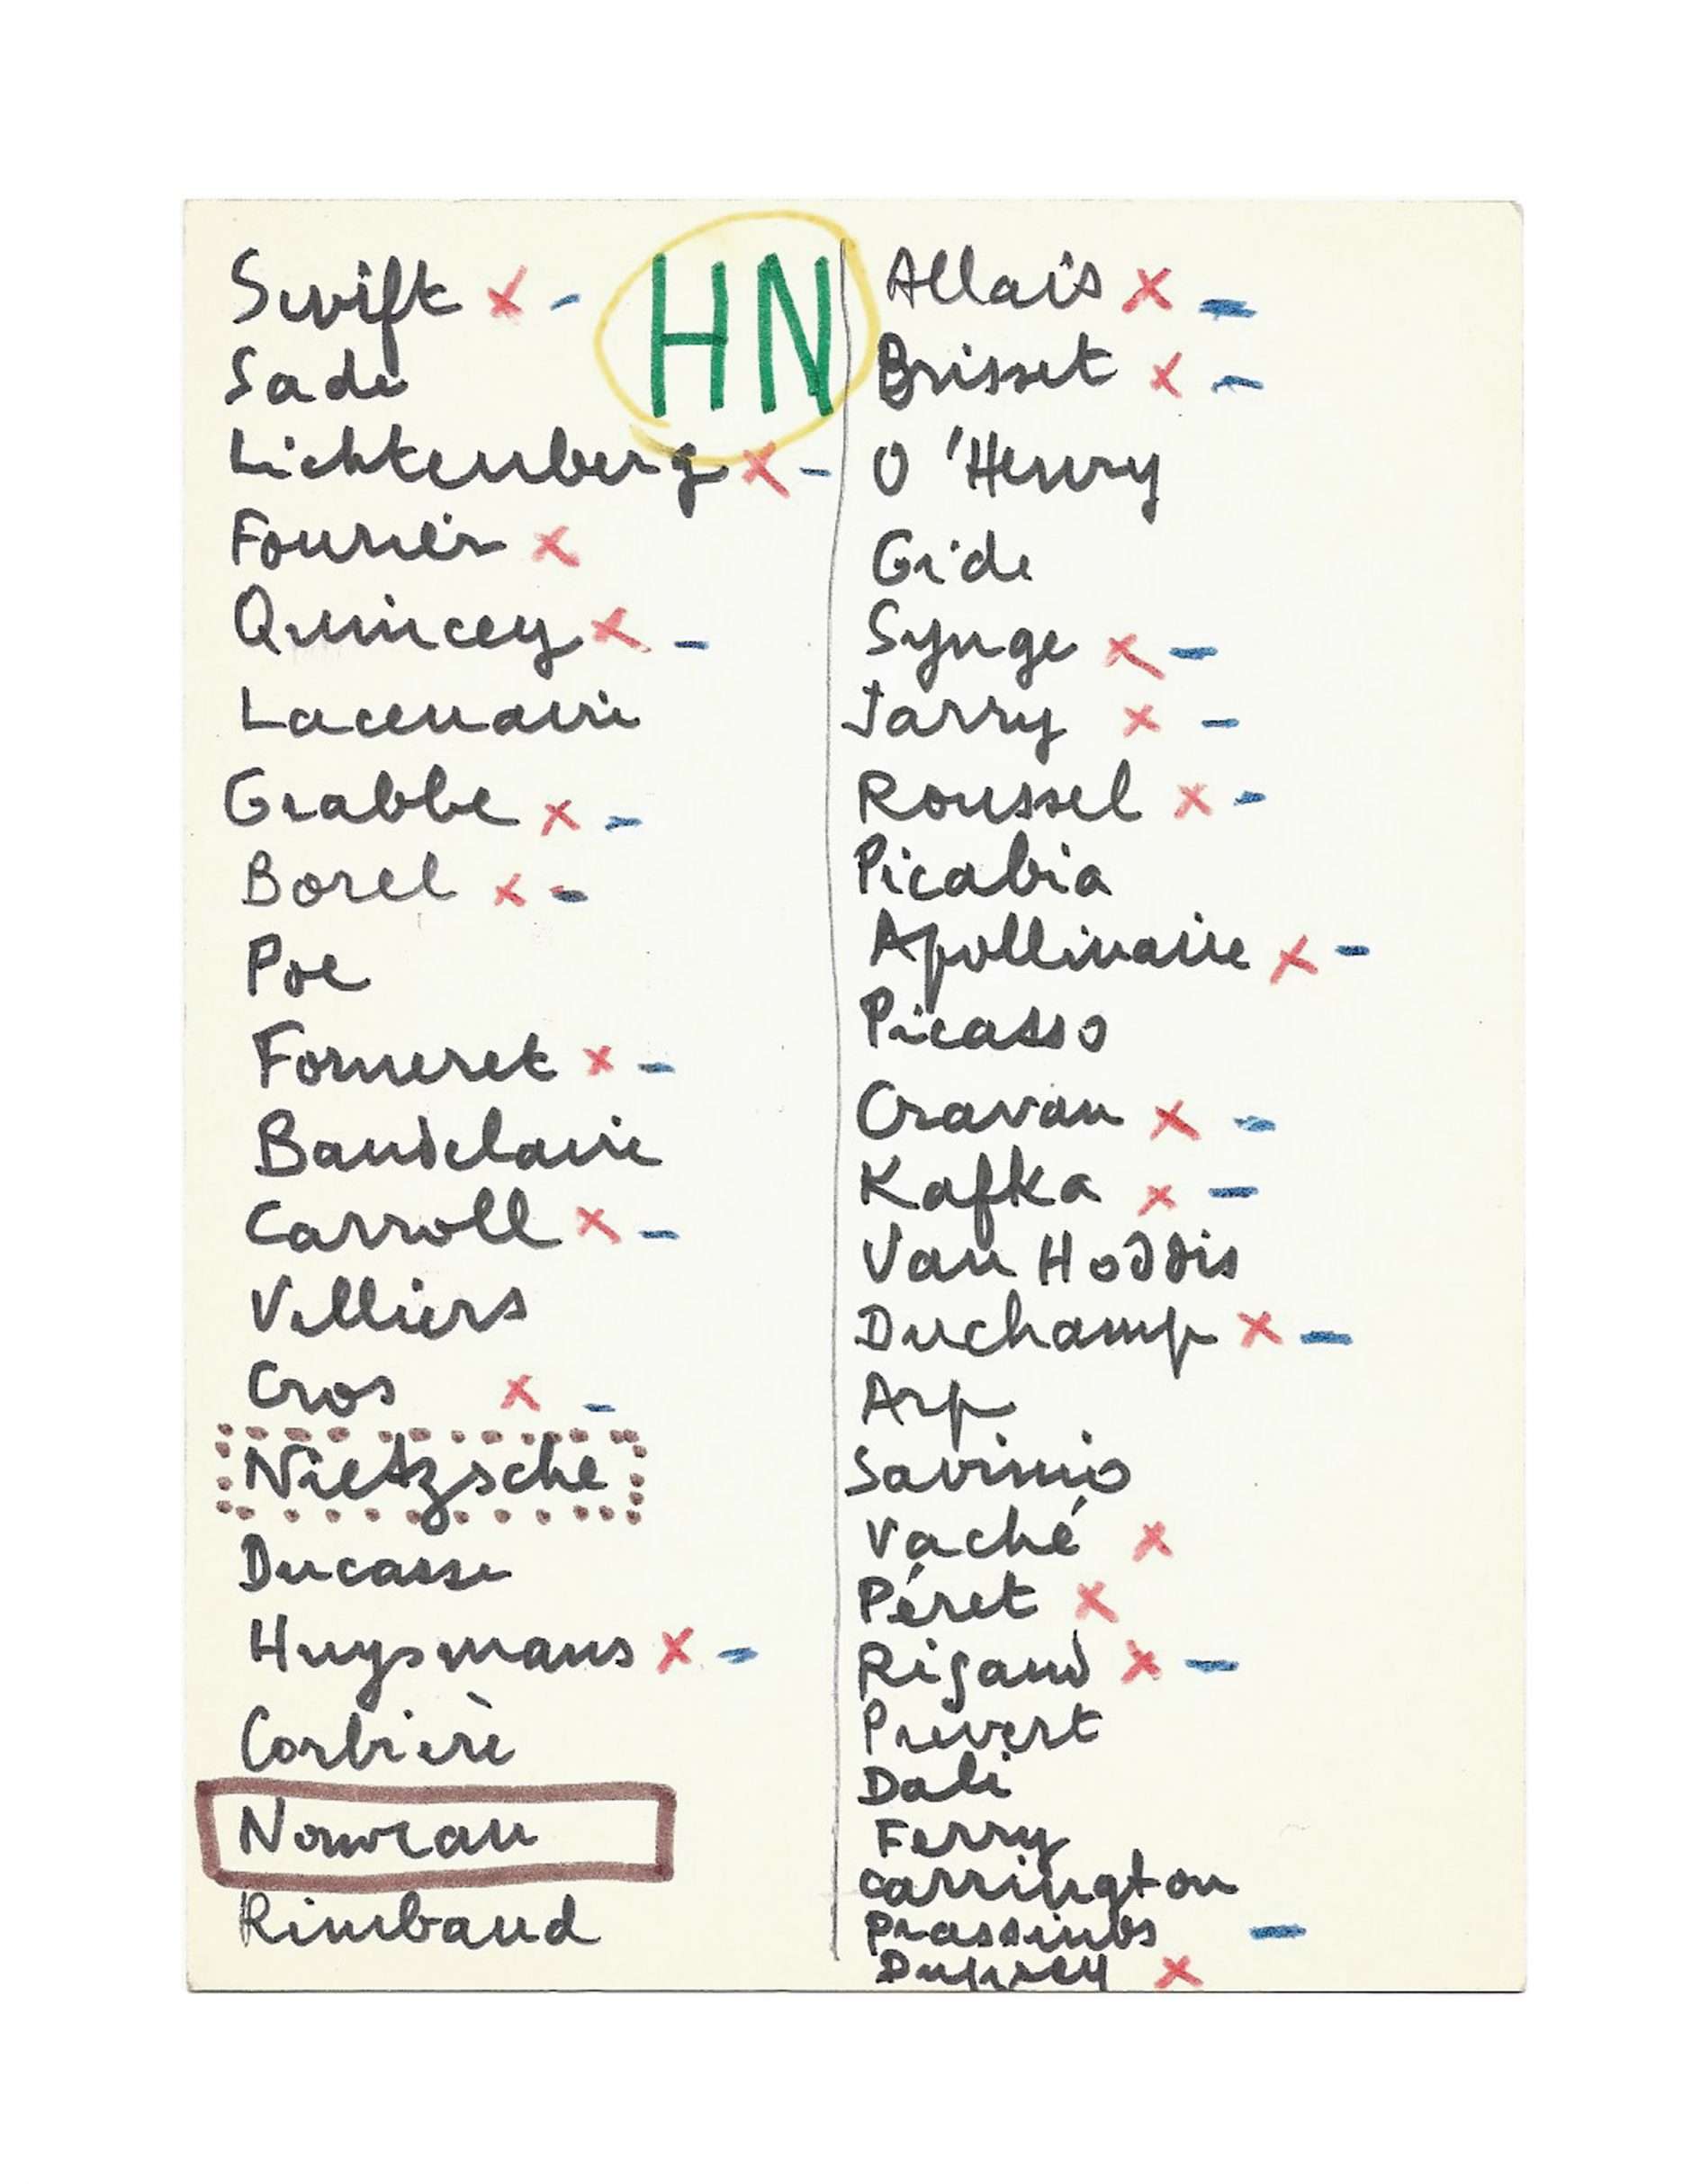 HN
Swift x -
Sade
Lichtenberg x -
Fourier x
Quincey x -
Lacenaire
Grabbe x -
Borel x -
Poe
Forneret x -
Baudelaire
Carroll x -
Villiers
Cros x -
Nietzsche
Ducasse
Huysmans x -
Corbière
Nouveau
Rimbaud
Allais x -
Brisset x -
O'Henry
Gide
Synge x -
Jarry x -
Roussel x -
Picabia
Apollinaire x -
Picasso
Cravan x -
Kafka x -
Van Hoddis
Duchamp x -
Arp
Savinio
Vaché x
Péret x
Rigaud x -
Prevert
Dali
Ferry
Carrington
Prassinos -
Duprey x